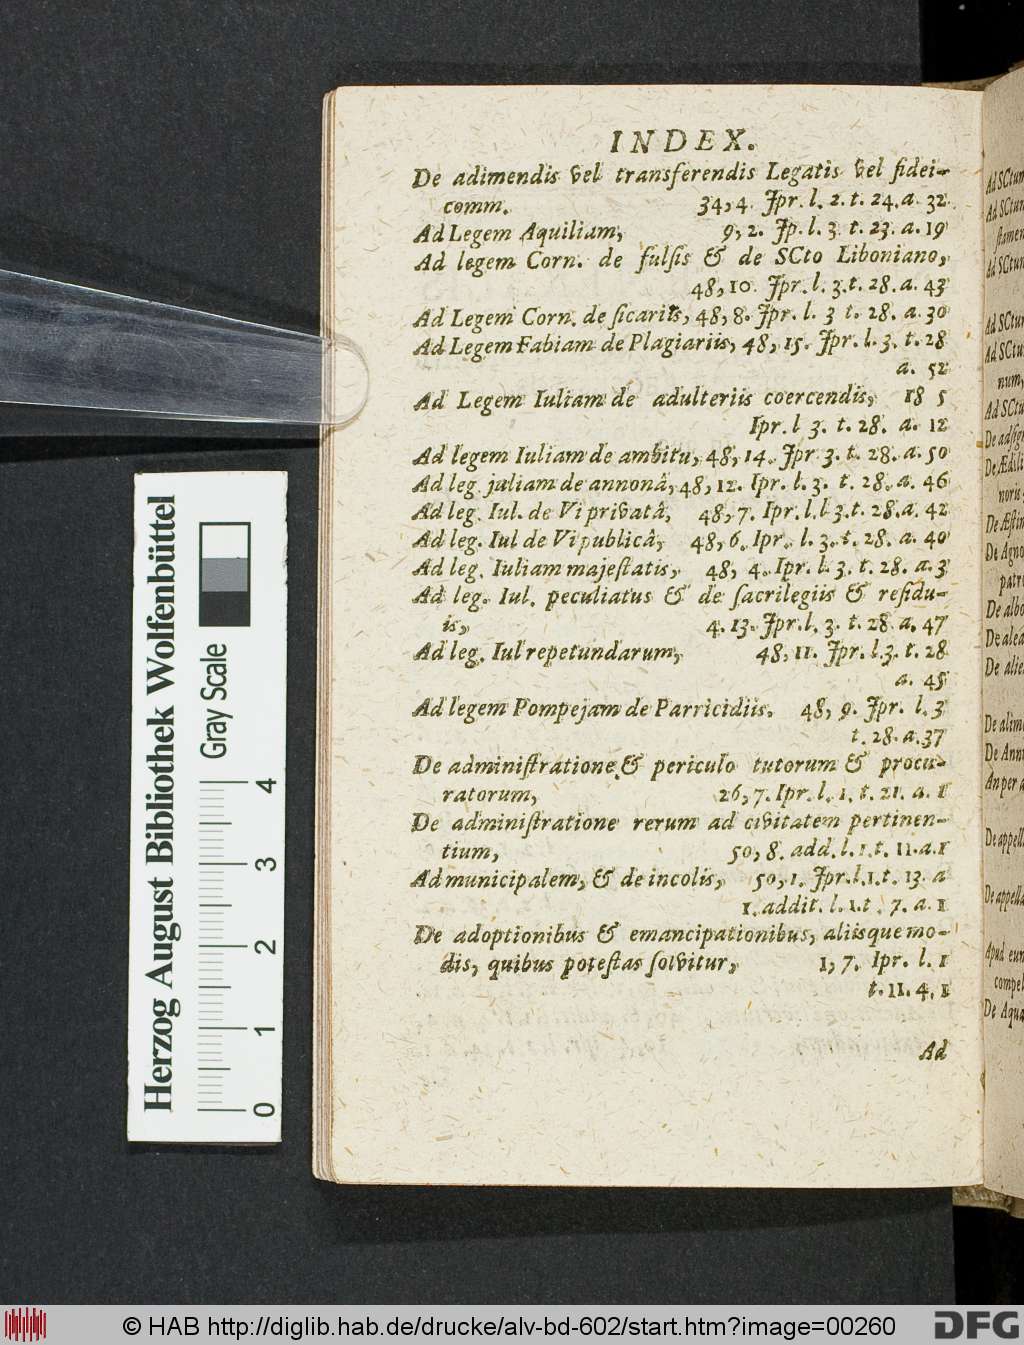 INDEX.
De adimendis vel transferendis Legatis vel fidei-
comm. 34, 4. Jpr. l. 2. t. 24. a. 32
Ad Legem Aquiliam, 9, 2. Jp. l. 3. t. 23. a. 19
Ad legem Corn. de falſis & de SCto Liboniano,
48, 10. Jpr. l. 3. t. 28. a. 43
Ad Legem Corn. de ſicariis, 48, 8. Jpr. l. 3 t. 28. a. 30
Ad Legem Fabiam de Plagiariis, 48, 15. Jpr. l. 3. t. 28
a. 52
Ad Legem Iuliam de adulteriis coercendis, 18 5
Ipr. l 3. t. 28. a. 12
Ad legem Iuliam de ambitu, 48, 14. Jpr 3. t. 28. a. 50
Ad leg. juliam de annonâ, 48, 12. Ipr. l. 3. t. 28. a. 46
Ad leg. Iul. de Vi privatâ, 48, 7. Ipr. l. l 3. t. 28. a. 42
Ad leg. Iul de Vi publicâ, 48, 6. Ipr. l. 3. t. 28. a. 40
Ad leg. Iuliam majeſtatis, 48, 4. Ipr. l. 3. t. 28. a. 3
Ad leg. Iul. peculiatus & de ſacrilegiis & reſidu-
is, 4. 13. Jpr. l. 3. t. 28. a. 47
Ad leg. Iul repetundarum, 48, 11. Jpr. l 3. t. 28
a. 45
Ad legem Pompejam de Parricidiis. 48, 9. Jpr. l. 3
t. 28. a. 37
De adminiſtratione & periculo tutorum & procu-
ratorum, 26, 7. Ipr. l. 1. t. 21. a. 1
De adminiſtratione rerum ad civitatem pertinen-
tium, 50, 8. add. l. 1. t. 11. a. 1
Ad municipalem, & de incolis, 50, 1. Jpr. l. 1. t. 13. a
1. addit. l. 1. t. 7. a. 1
De adoptionibus & emancipationibus, aliisque mo-
dis, quibus poteſtas ſolvitur, 1, 7. Ipr. l. 1
t. 11. 4. 1
Ad
Ad SCtum
Ad SCtum
Herzog August Bibliothek Wolfenbüttel
Gray Scale
0 1 2 3 4
© HAB http://diglib.hab.de/drucke/alv-bd-602/start.htm?image=00260
DFG